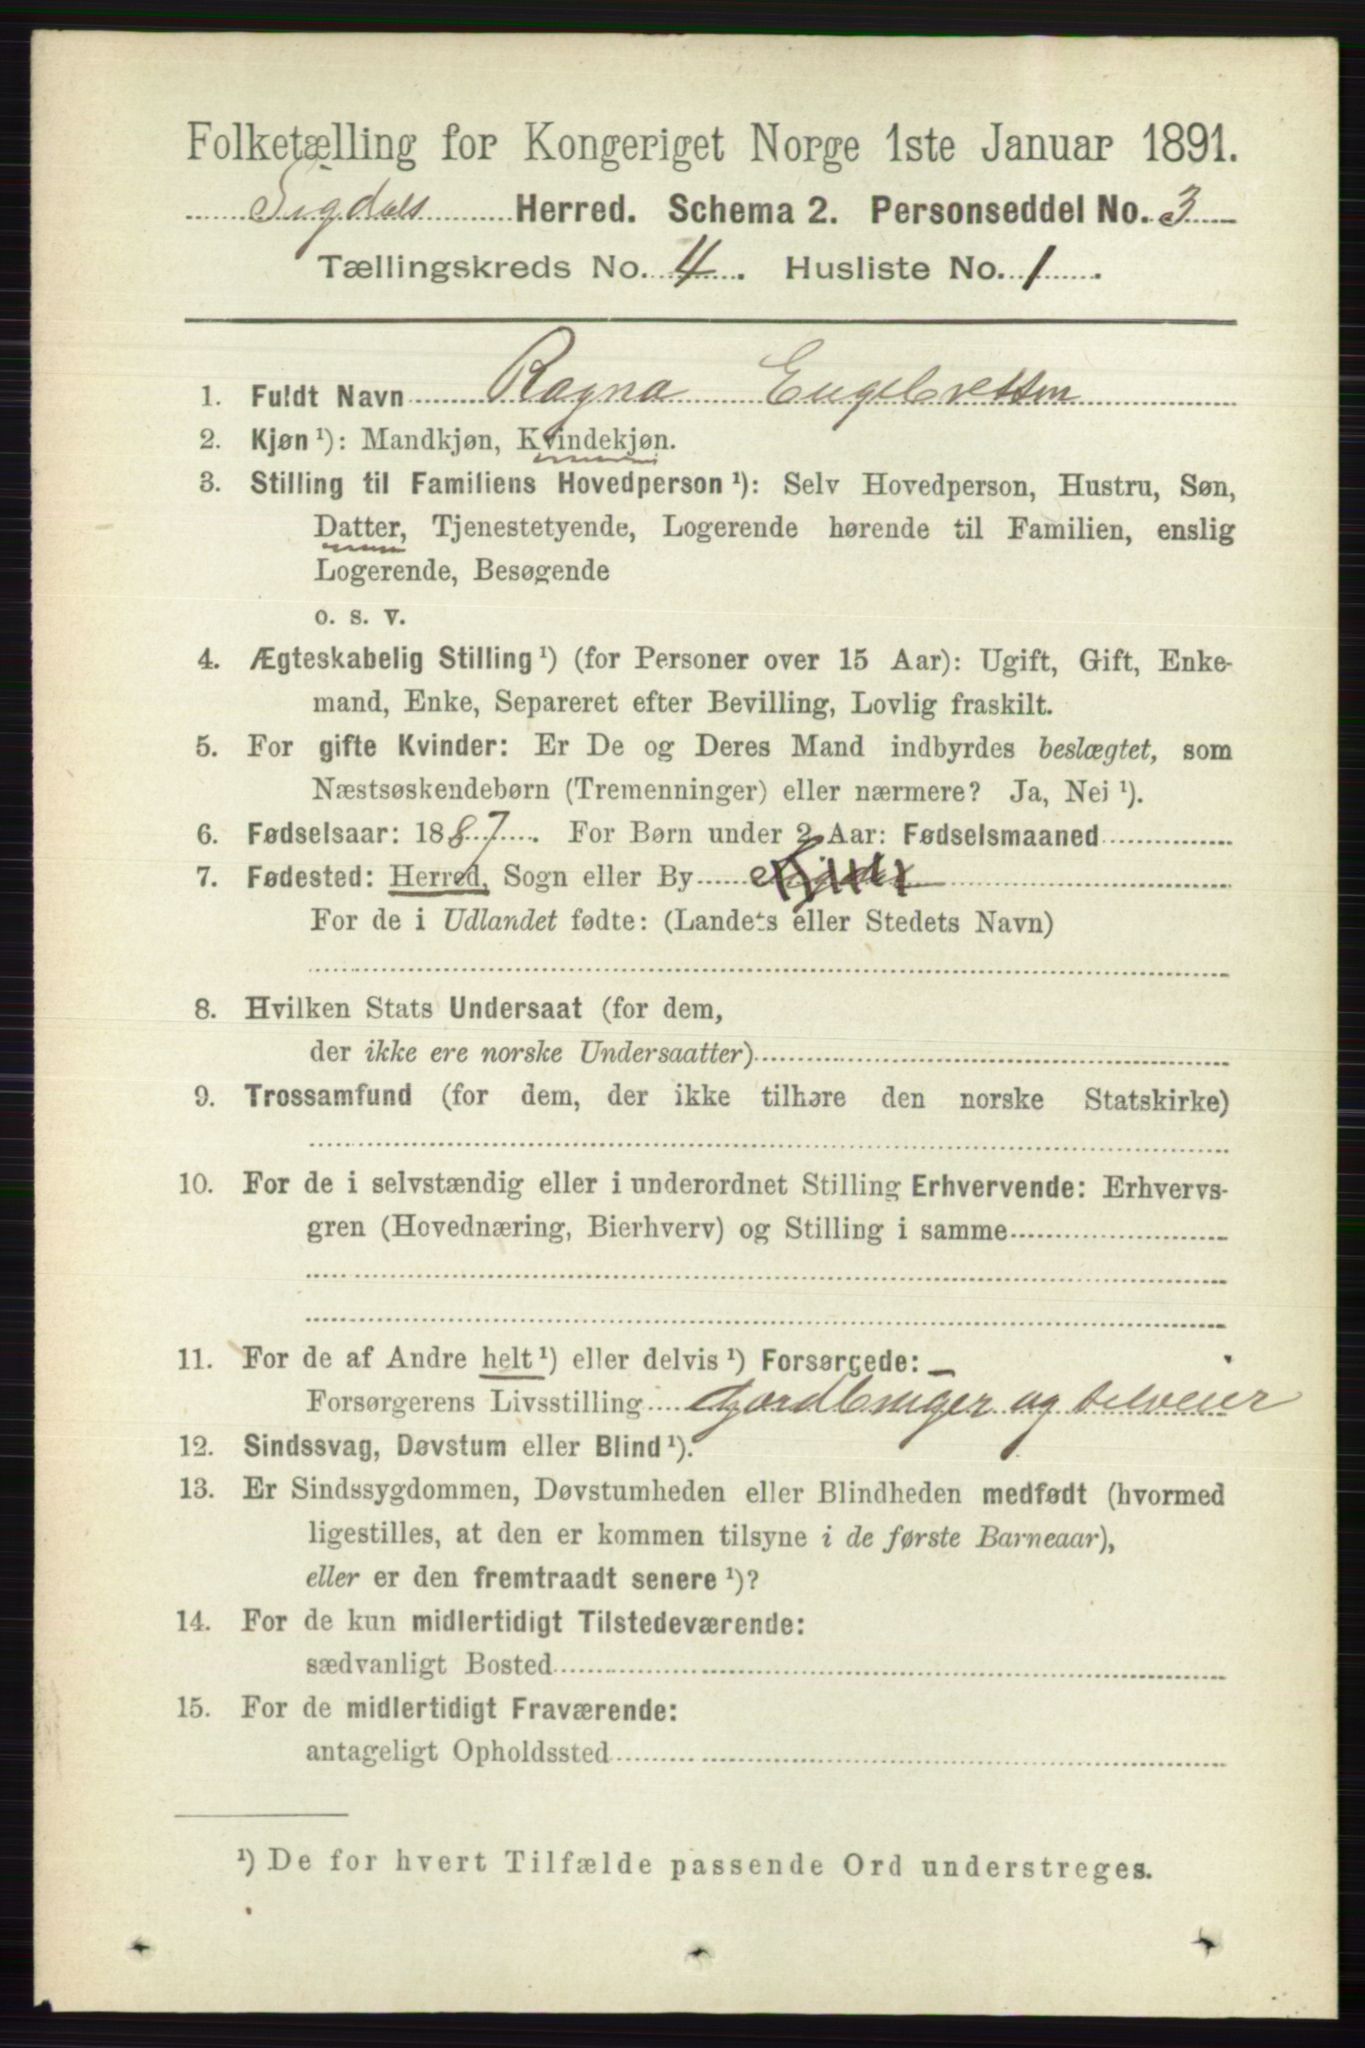 Folketælling for Kongeriget Norge 1ste Januar 1891.
Sigdals Herred. Schema 2. Personseddel No. 3
Tællingskreds No. 4. Husliste No. 1.
1. Fuldt Navn Ragna Engebretsen
2. Kjøn ¹): Mandkjøn, Kvindekjøn.
3. Stilling til Familiens Hovedperson ¹): Selv Hovedperson, Hustru, Søn,
Datter, Tjenestetyende, Logerende hørende til Familien, enslig
Logerende, Besøgende
o. s. v.
4. Ægteskabelig Stilling ¹) (for Personer over 15 Aar): Ugift, Gift, Enke-
mand, Enke, Separeret efter Bevilling, Lovlig fraskilt.
5. For gifte Kvinder: Er De og Deres Mand indbyrdes beslægtet, som
Næstsøskendebørn (Tremenninger) eller nærmere? Ja, Nei ¹).
6. Fødselsaar: 1887. For Børn under 2 Aar: Fødselsmaaned
7. Fødested: Herred, Sogn eller By
For de i Udlandet fødte: (Landets eller Stedets Navn)
8. Hvilken Stats Undersaat (for dem,
der ikke ere norske Undersaatter)
9. Trossamfund (for dem, der ikke tilhøre den norske Statskirke)
10. For de i selvstændig eller i underordnet Stilling Erhvervende: Erhvervs-
gren (Hovednæring, Bierhverv) og Stilling i samme
11. For de af Andre helt ¹) eller delvis ¹) Forsørgede:
Forsørgerens Livsstilling Gjordbruger og selveier
12. Sindssvag, Døvstum eller Blind ¹).
13. Er Sindssygdommen, Døvstumheden eller Blindheden medfødt (hvormed
ligestilles, at den er kommen tilsyne i de første Barneaar),
eller er den fremtraadt senere ¹)?
14. For de kun midlertidigt Tilstedeværende:
sædvanligt Bosted
15. For de midlertidigt Fraværende:
antageligt Opholdssted
¹) De for hvert Tilfælde passende Ord understreges.